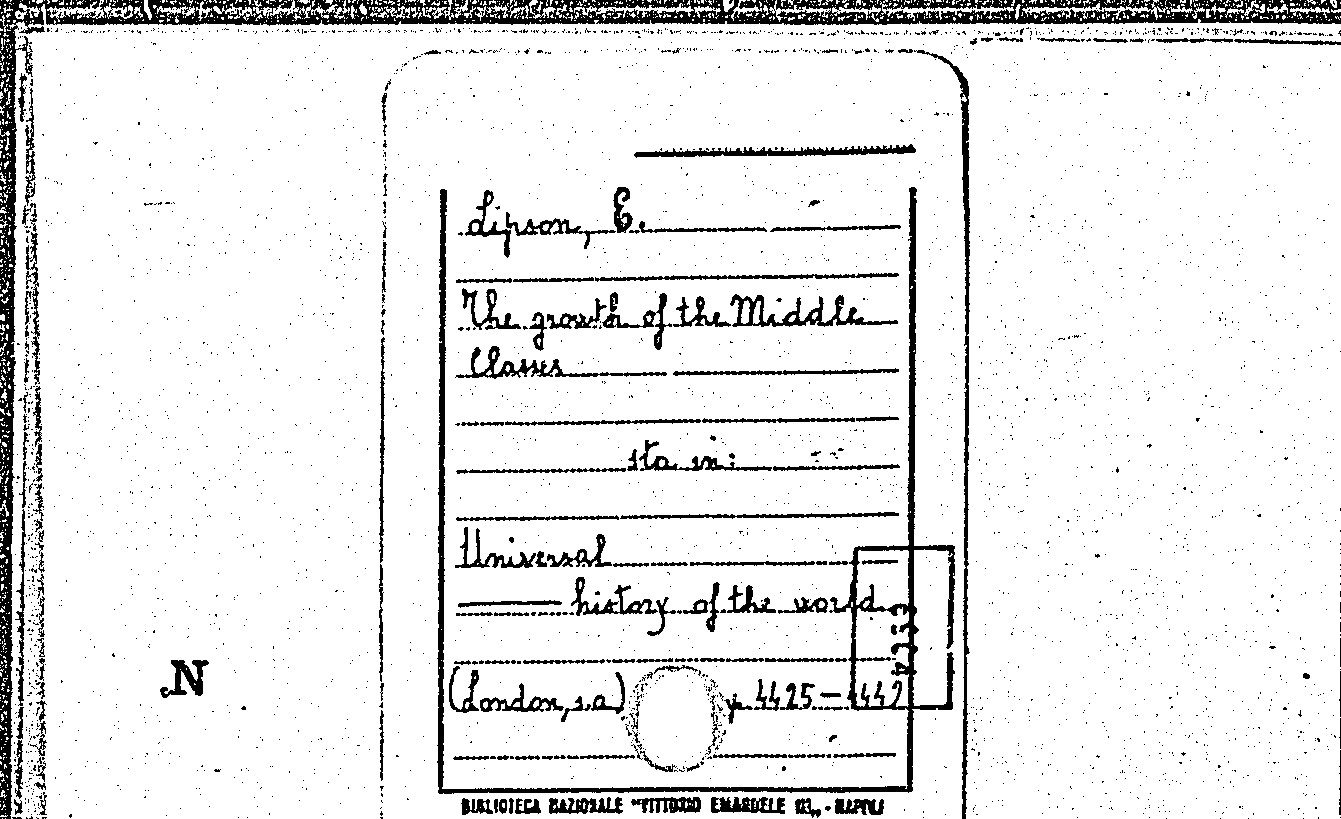 Lipson, E.
The growth of the Middle
Classes
sta in:
Universal
——— history of the world
(London, s.a.) p. 4425-4442
N.
BIBLIOTECA NAZIONALE "VITTORIO EMANUELE III" - NAPOLI